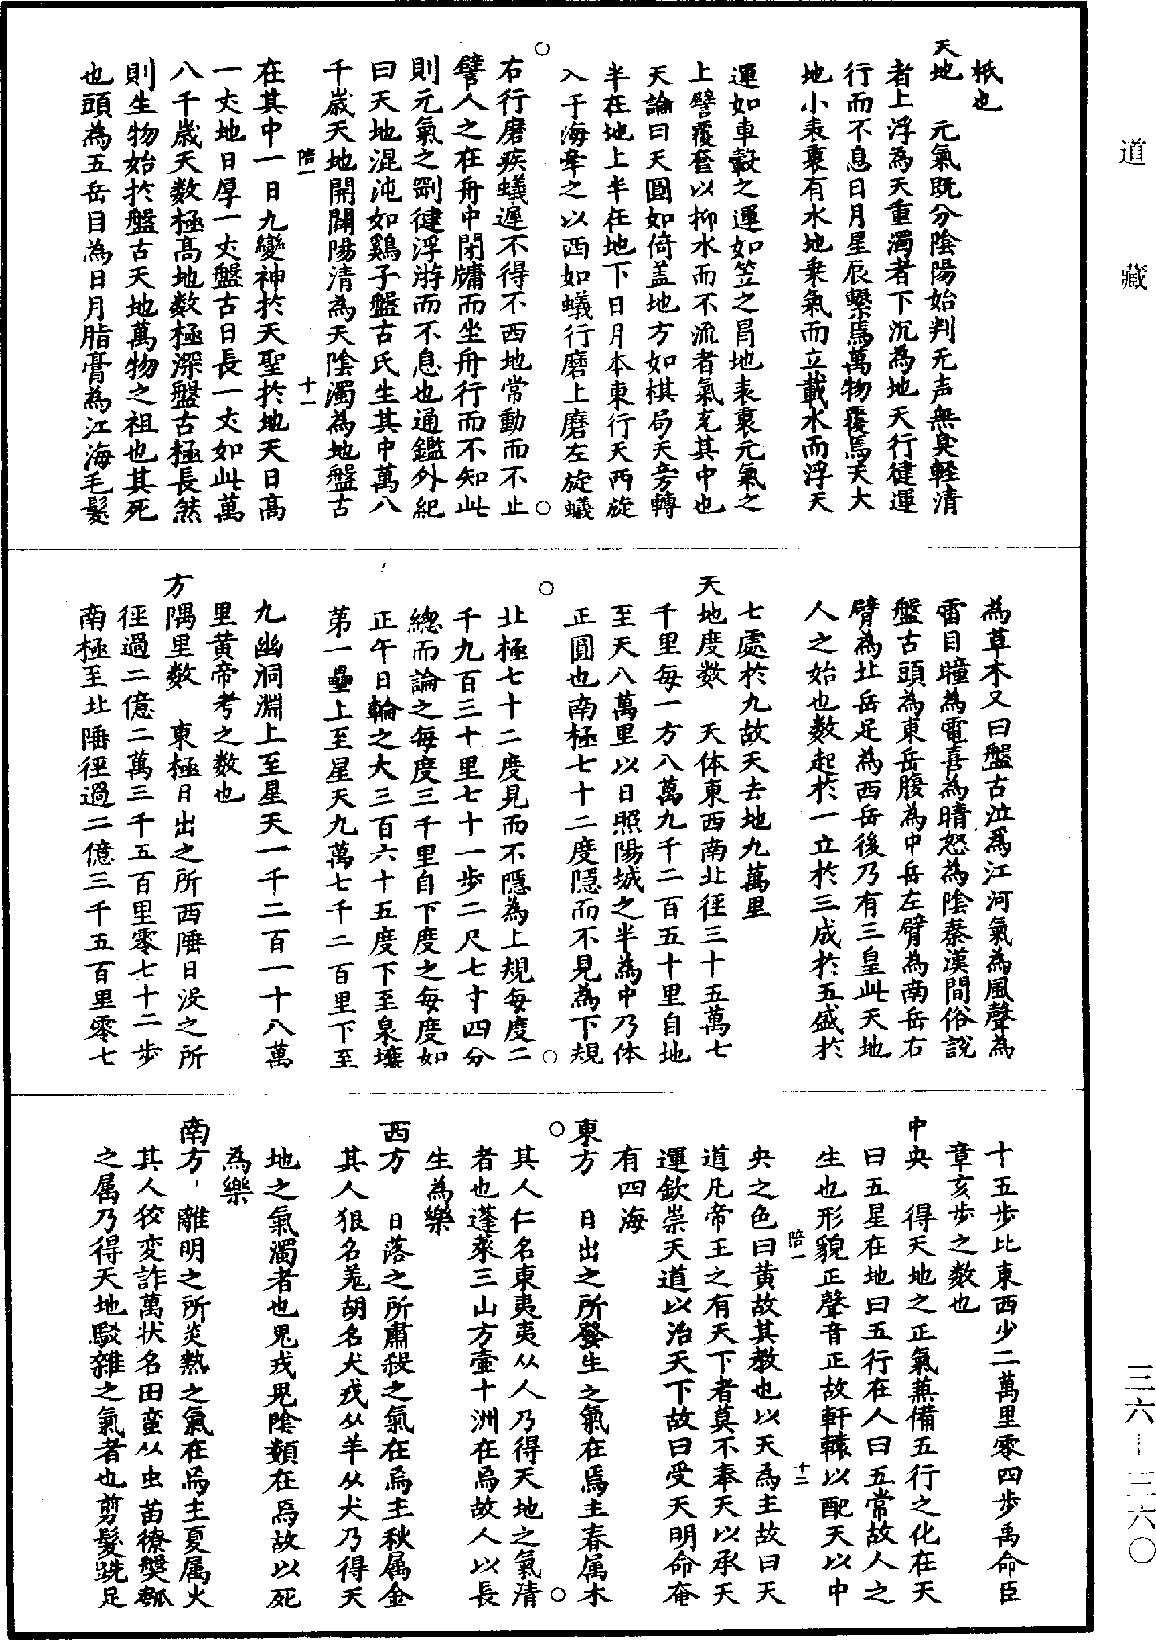 道藏
三六—二六〇
祇也
天地　元氣既分陰陽始判无声無臭軽清
者上浮為天重濁者下沉為地天行徤運
行而不息日月星辰繫焉萬物覆焉天大
地小表裏有水地乗氣而立載水而浮天
運如車轂之運如笠之冐地表裏元氣之
上譬覆奩以抑水而不流者氣充其中也
天論曰天圓如倚盖地方如棋局天旁轉
半在地上半在地下日月本東行天西旋
入于海牽之以西如蟻行磨上磨左旋蟻
右行磨疾蟻遲不得不西地常動而不止
譬人之在舟中閉牖而坐舟行而不知此
則元氣之劉徤浮游而不息也通鑑外紀
曰天地混沌如鷄子盤古氏生其中萬八
千歲天地開闢陽清為天陰濁為地盤古
陪一　十一
在其中一日九變神扵天聖扵地天日高
一丈地日厚一丈盤古日長一丈如此萬
八千歲天数極高地数極深盤古極長然
則生物始扵盤古天地萬物之祖也其死
也頭為五岳目為日月脂膏為江海毛髮
為草木又曰盤古泣爲江河氣為風聲為
雷目瞳為電喜為晴怒為陰秦漢間俗說
盤古頭為東岳腹為中岳左臂為南岳右
臂為北岳足為西岳後乃有三皇此天地
人之始也数起扵一立扵三成扵五盛扵
七處扵九故天去地九萬里
天地度数　天体東西南北徑三十五萬七
千里每一方八萬九千二百五十里自地
至天八萬里以日照陽城之半為中乃体
正圓也南極七十二度隱而不見為下規
北極七十二度見而不隱為上規每度二
千九百三十里七十一步二尺七寸四分
總而論之每度三千里自下度之每度如
正午日輪之大三百六十五度下至泉壤
第一壘上至星天九萬七千二百里下至
九幽洞淵上至星天一千二百一十八萬
里黄帝考之数也
方隅里数　東極日出之所西陲日沒之所
徑過二億二萬三千五百里零七十二步
南極至北陲徑過二億三千五百里零七
十五步比東西少二萬里零四步禹命臣
章亥步之数也
中央　得天地之正氣蕪備五行之化在天
曰五星在地曰五行在人曰五常故人之
生也形貌正聲音正故軒轅以配天以中
陪一　十二
央之色曰黄故其教也以天為主故曰天
道凡帝王之有天下者莫不奉天以承天
運欽崇天道以治天下故曰受天明命奄
有四海
東方　日出之所發生之氣在焉主春属木
其人仁名東夷夷从人乃得天地之氣清
者也蓬萊三山方壷十洲在焉故人以長
生為樂
西方　日落之所肅殺之氣在焉主秋属金
其人狠名羗胡名犬戎从羊从犬乃得天
地之氣濁者也鬼戎鬼陰類在焉故以死
為樂
南方　離明之所炎熱之氣在焉主夏属火
其人狡変詐萬状名田蛮从虫苗獠槃瓠
之属乃得天地駁雜之氣者也剪髮跣足